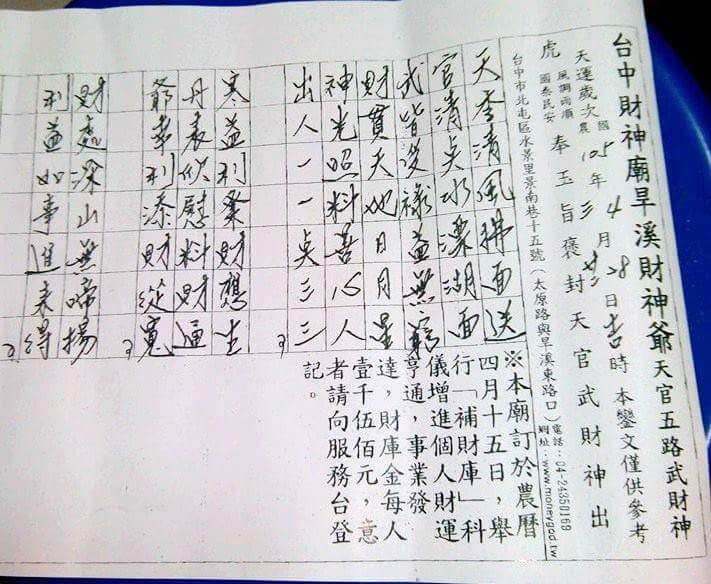 台中財神廟旱溪財神爺 天官五路武財神
天運歲次 國農 105年三 4月 28日吉時 本鑾文僅供參考
虎 風調雨順 國泰民安 奉玉旨褒封天官武財神出
台中市北屯區水景里景南巷十五號(太原路與旱溪東路口) 電話:04-24350169
網址:www.moneygod.tw
天李清風拂面送
官清 水漂湖面
武皆 祿益無窮
財貫天地日月星
神光照料善信人
出人一一 三三
寒益利聚財想生
丹表 慰料財運
爺事利添財從寬
財處深山無啼揚
利益如事進未得
※本廟訂於農曆
四月十五日,舉
行「補財庫」科
儀增進個人財運
亨通,事業發
達,財庫金每人
壹千伍佰元,意
者請向服務台登
記。